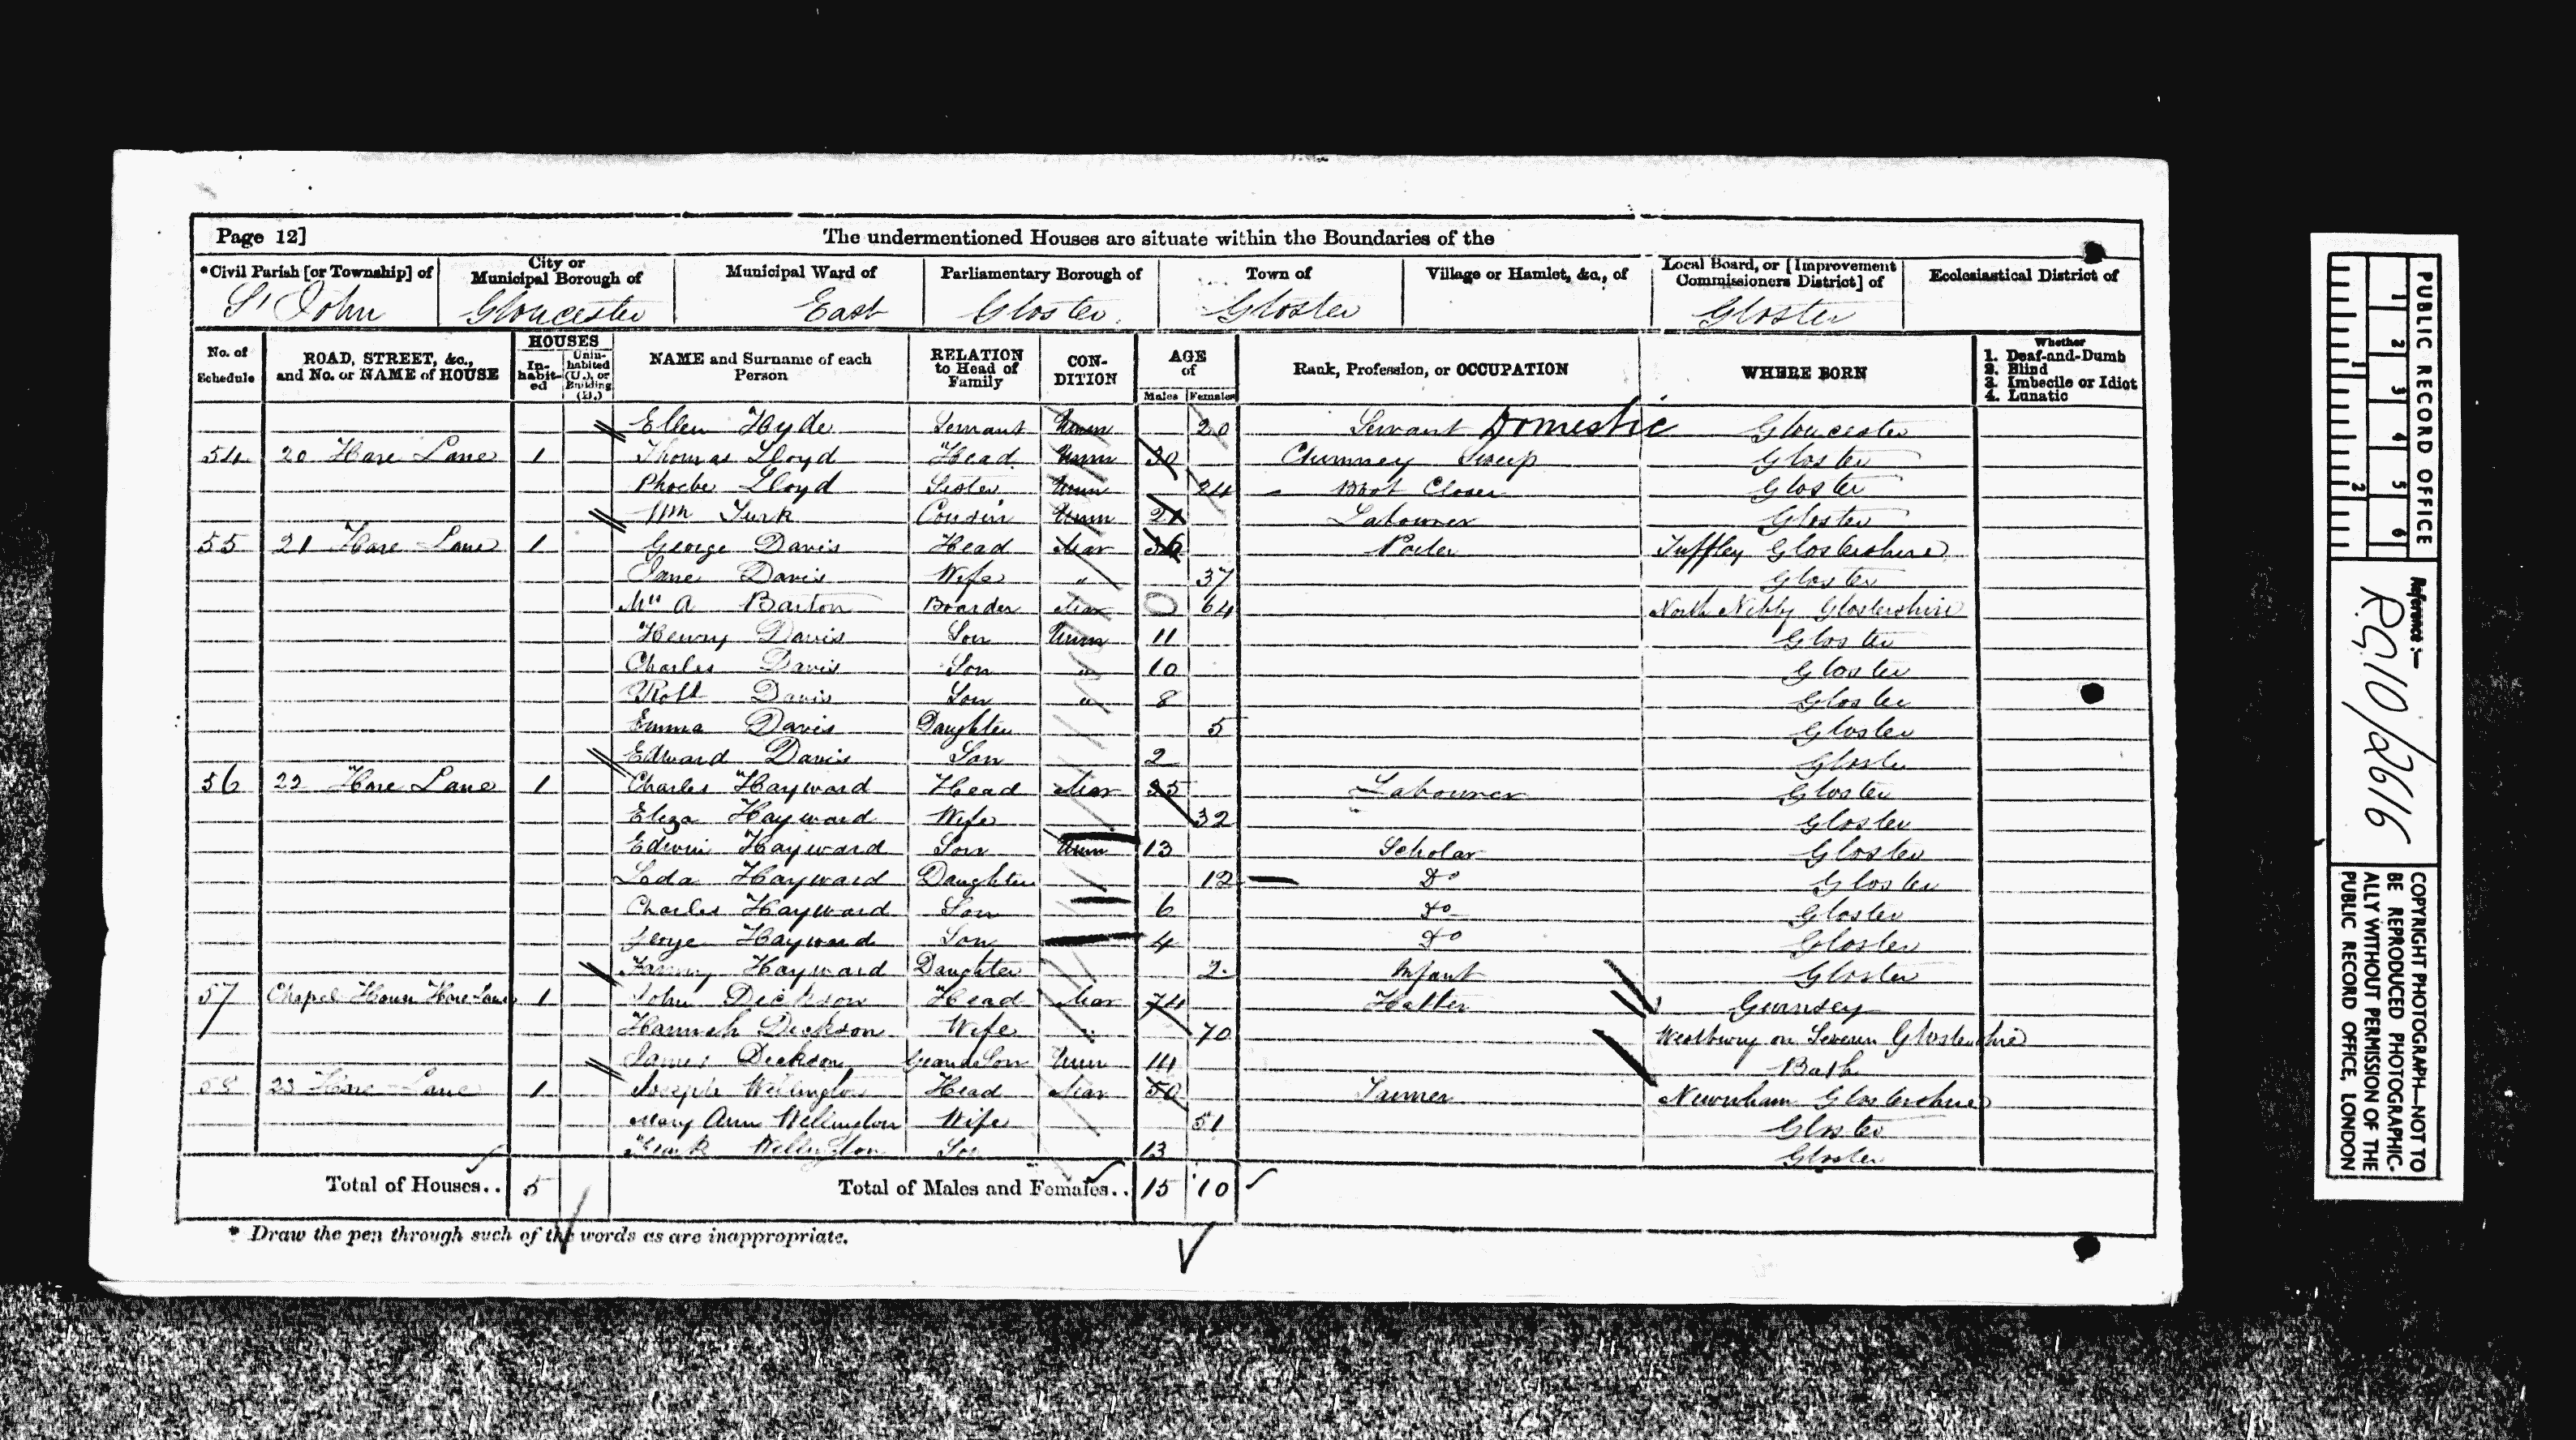 Page 12] The undermentioned Houses are situate within the Boundaries of the
*Civil Parish [or Township] of St John
City or Municipal Borough of Gloucester
Municipal Ward of East
Parliamentary Borough of Gloster
Town of Gloster
Village or Hamlet, &c., of
Local Board, or [Improvement Commissioners District] of Gloster
Ecclesiastical District of
No. of Schedule
ROAD, STREET, &c., and No. or NAME of HOUSE
HOUSES
Inhabited
Uninhabited (U.), or Building (B.)
NAME and Surname of each Person
RELATION to Head of Family
CONDITION
AGE of
Males Females
Rank, Profession, or OCCUPATION
WHERE BORN
Whether
1. Deaf-and-Dumb
2. Blind
3. Imbecile or Idiot
4. Lunatic
Ellen Hyde Servant Unm 20 Servant Domestic Gloucester
54 20 Hare Lane 1 Thomas Lloyd Head Unm 30 Chimney Sweep Gloster
Phoebe Lloyd Sister Unm 24 Boot Closer Gloster
Wm Turk Cousin Unm 21 Labourer Gloster
55 21 Hare Lane 1 George Davis Head Mar 36 Porter Tuffley Glostershire
Jane Davis Wife " 37 Gloster
A Barton Boarder Mar 64 North Nibly Glostershire
Henry Davis Son Unm 11 Gloster
Charles Davis Son " 10 Gloster
Robt Davis Son " 8 Gloster
Emma Davis Daughter 5 Gloster
Edward Davis Son 2 Gloster
56 22 Hare Lane 1 Charles Hayward Head Mar 35 Labourer Gloster
Eliza Hayward Wife 32 Gloster
Edwin Hayward Son Unm 13 Scholar Gloster
Leda Hayward Daughter 12 Do Gloster
Charles Hayward Son 6 Do Gloster
George Hayward Son 4 Do Gloster
Fanny Hayward Daughter 2 Infant Gloster
57 Chapel House Hare Lane 1 John Dickson Head Mar 74 Hatter Guernsey
Hannah Dickson Wife " 70 Westbury on Severn Glostershire
James Dickson Grand Son Unm 14 Bath
58 23 Hare Lane 1 Joseph Wellington Head Mar 50 Tanner Newnham Glostershire
Mary Ann Wellington Wife 51 Gloster
Frank Wellington Son 13 Gloster
Total of Houses.. 5 Total of Males and Females.. 15 10
* Draw the pen through such of the words as are inappropriate.
PUBLIC RECORD OFFICE
1 2 3 4 5 6
1 2
Reference:—
RG10/2616
COPYRIGHT PHOTOGRAPH—NOT TO
BE REPRODUCED PHOTOGRAPHIC-
ALLY WITHOUT PERMISSION OF THE
PUBLIC RECORD OFFICE, LONDON